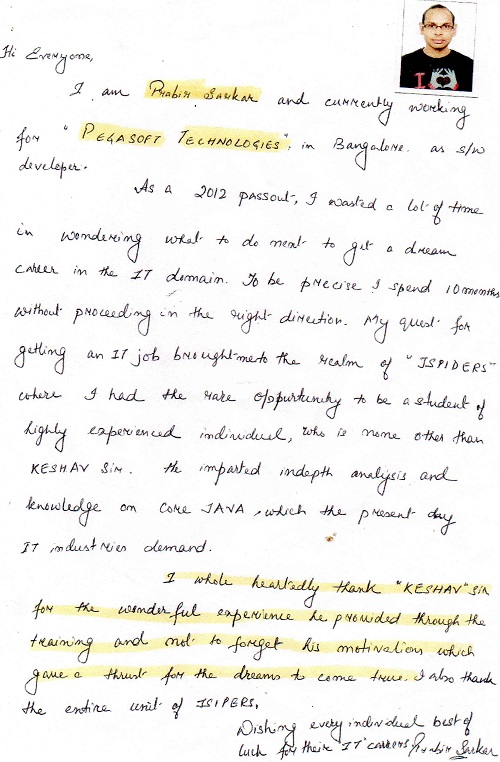 Hi Everyone,
I am Prabir Sarkar and currently working
for "PEGASOFT TECHNOLOGIES", in Bangalore. as s/w
developer.
As a 2012 passout, I wasted a lot of time
in wondering what to do next to get a dream
career in the IT domain. To be precise I spend 10 months
without proceeding in the right direction. My quest for
getting an IT job brought me to the realm of "JSPIDERS"
where I had the rare oppurtunity to be a student of
highly experienced individual, who is none other than
KESHAV Sir. He imparted indepth analysis and
knowledge on Core JAVA, which the present day
IT industries demand.
I whole heartedly thank "KESHAV" Sir
for the wonderful experience he provided through the
training and not to forget his motivation which
gave a thrust for the dreams to come true. I also thank
the entire unit of JSIPERS.
Wishing every individual best of
luck for their "IT" careers Prabir Sarkar
I